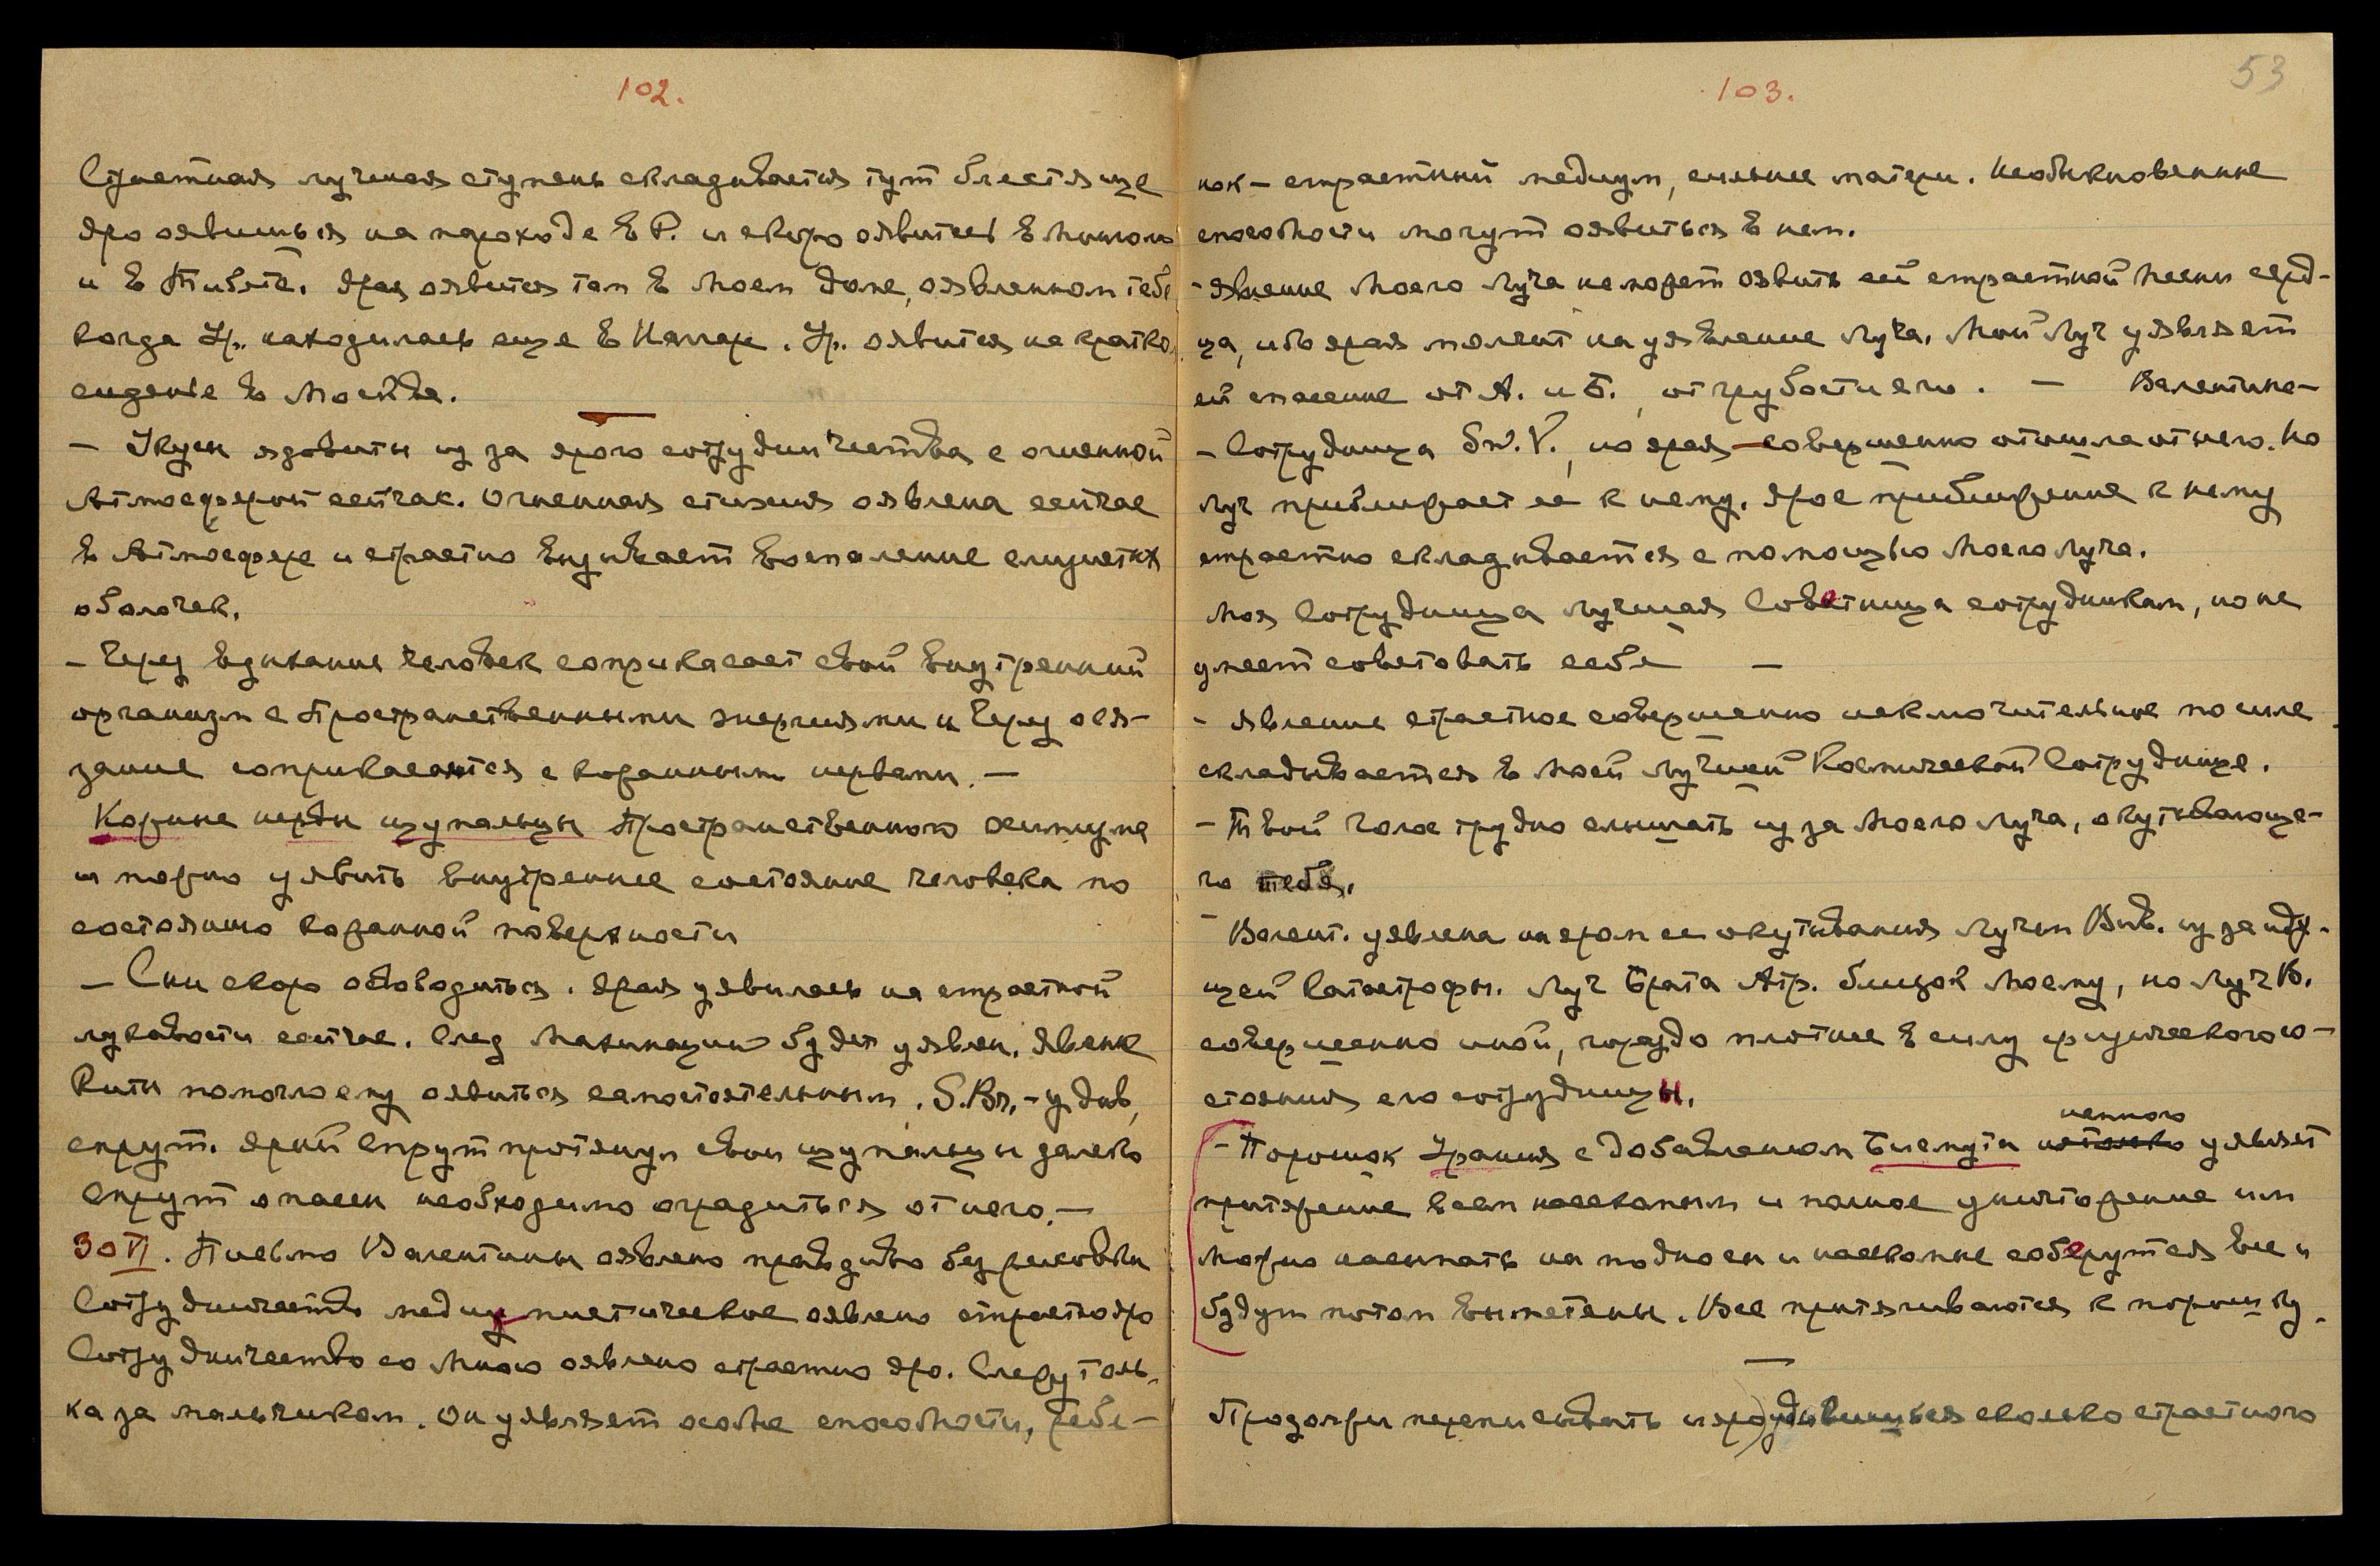 102.
Страстная лучшая ступень складывается тут блестяще
Яро оявишься на пароходе в Р. и скоро оявитесь в Монголи
и в Тибете. Ярая оявится там в Моем Доме, оявленном тебе
когда Ур. находилась еще в Наггаре. Ур. оявится на кратко
свиданье в Москве.
– Укусы ядовиты из за ярого сотрудничества с огненной
Атмосферой сейчас. Огненная стихия оявлена сейчас
в Атмосфере и страстно вызывает воспаление слизистых
оболочек.
– Через вдыхание человек соприкасает свой внутренний
организм с Пространственными энергиями и через ося-
зание соприкасается с кожанным нервами. –
Кожные нервы щупальцы Пространственного
и можно уявить внутреннее состояние человека по
состоянию кожанной поверхности
– Сни скоро освободиться. Ярая уявилась на страстной
лукавости сейчас. След Махинаций будет уявлен. Явление
Киты помогло ему оявиться самостоятельным. S.Br. – удав,
спрут. Ярый Спрут протянул свои щупальцы далеко
Спрут опасен необходимо оградиться от него. –
30 VI. Письмо Валентины оявлено правдиво без рисовки
Сотрудничество медиумистическое оявлено страстно яро
Сотрудничество со Мною оявлено страстно яро. Слежу толь-
ка за мальчиком. Он уявляет особые способности, ребе-
103.
53
нок – страстный медиум, сильнее матери. Необыкновенные
способности могут оявиться в нем.
– Явление Моего Луча не может оявить ей страстной Песни серд-
ца, ибо ярая молит на уявление Луча. Мой Луч уявляет
ей спасение от А. и Б., от грубости его. – Валентина –
– Сотрудница Sw. V., но ярая совершенно отошла от него. Но
Луч приближает ее к нему. Ярое приближение к нему
страстно складывается с помощью Моего Луча.
Моя Сотрудница лучшая Советница сотрудникам, но не
умеет советовать себе –
– Явление страстное совершенно исключительное по силе
складывается в Моей лучшей Космической Сотруднице.
– Твой голос трудно слышать из за Моего Луча, окутывающе-
го тебя.
– Валент. уявлена на яром ее окутывания Лучом Вив. из за иду-
щей Катастрофы. Луч Брата Атр. близок Моему, но Луч В.
совершенно иной, гораздо плотнее в силу физического со-
стояния его сотрудницы.
– Порошок Урания с добавлением Бисмута
немного
уявляет
притяжение всем насекомым и полное уничтожение им
Можно насыпать на подносы и насекомые соберутся все и
будут потом выметены. Все притягиваются к порошку.
–
Продолжи переписывать и яро удивишься сколько страстного